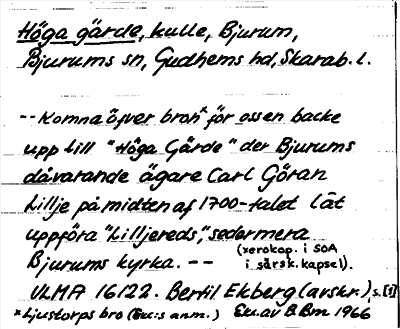 Höga gärde, kulle, Bjurum,
Bjurums sn, Gudhems hd, Skarab. l.
-- Komna öfver bron* för oss en backe
upp till "Höga Gärde" der Bjurums
dåvarande ägare Carl Göran
Lillje på midten af 1700-talet lät
uppföra "Lilljereds", sedermera
Bjurums kyrka. -- (xerokop. i SOA
i särsk. kapsel).
ULMA 16122. Bertil Ekberg (avskr.), s. [3]
* Ljustorps bro (Exc:s anm.) Exc. av B. Bm 1966